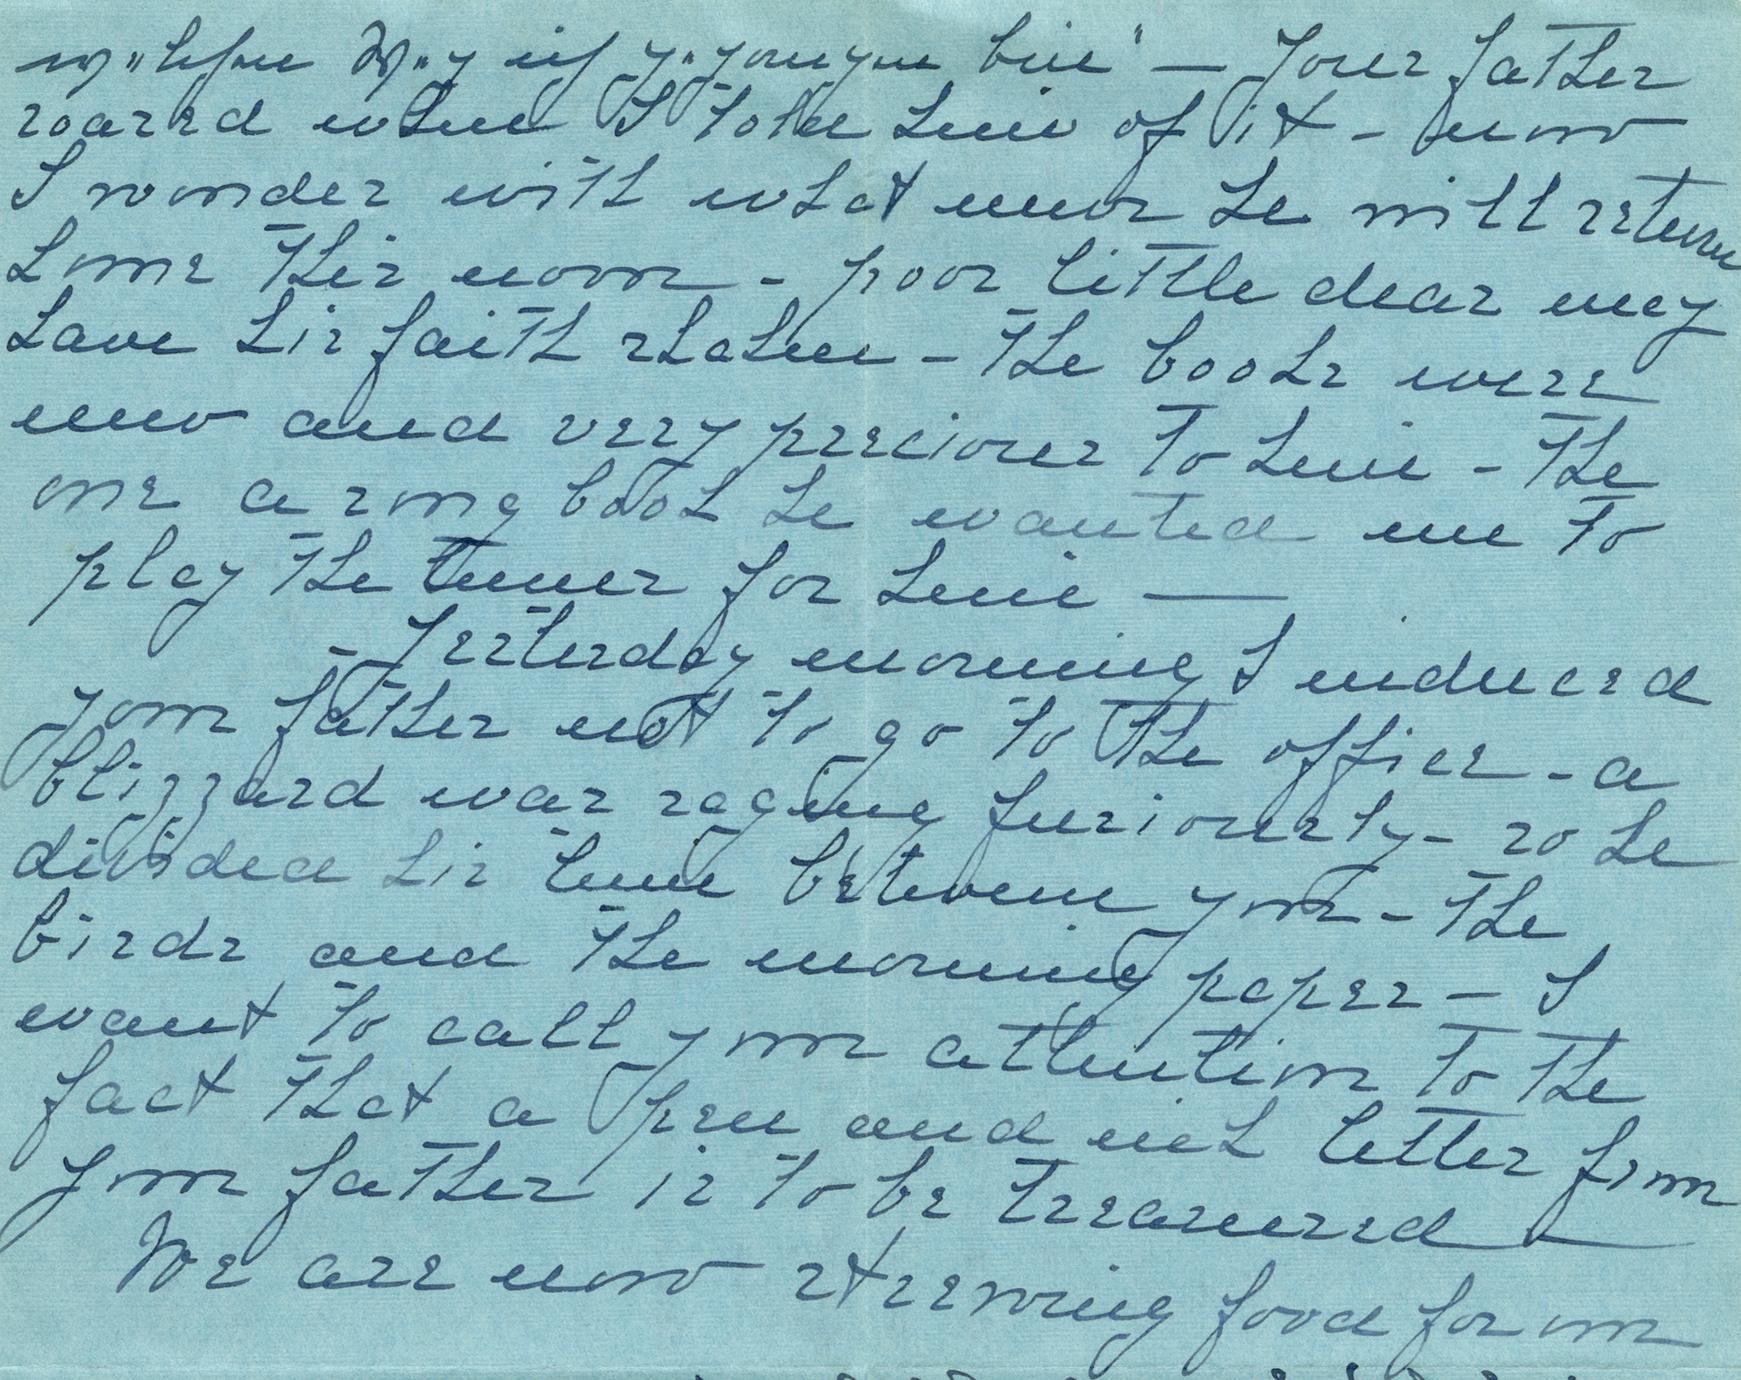 him" — Your father
roared when I told him of it - now
I wonder with what news he will return
home this noon - poor little dear may
have his faith shaken - the books were
new and very precious to him - the
one a song book he wanted me to
play the tunes for him —
- Yesterday morning I induced
your father not to go to the office - a
blizzard was raging furiously - so he
divided his time between you - the
birds and the morning paper - I
want to call your attention to the
fact that a pen and ink letter from
your father is to be treasured —
We are now strewing food for our